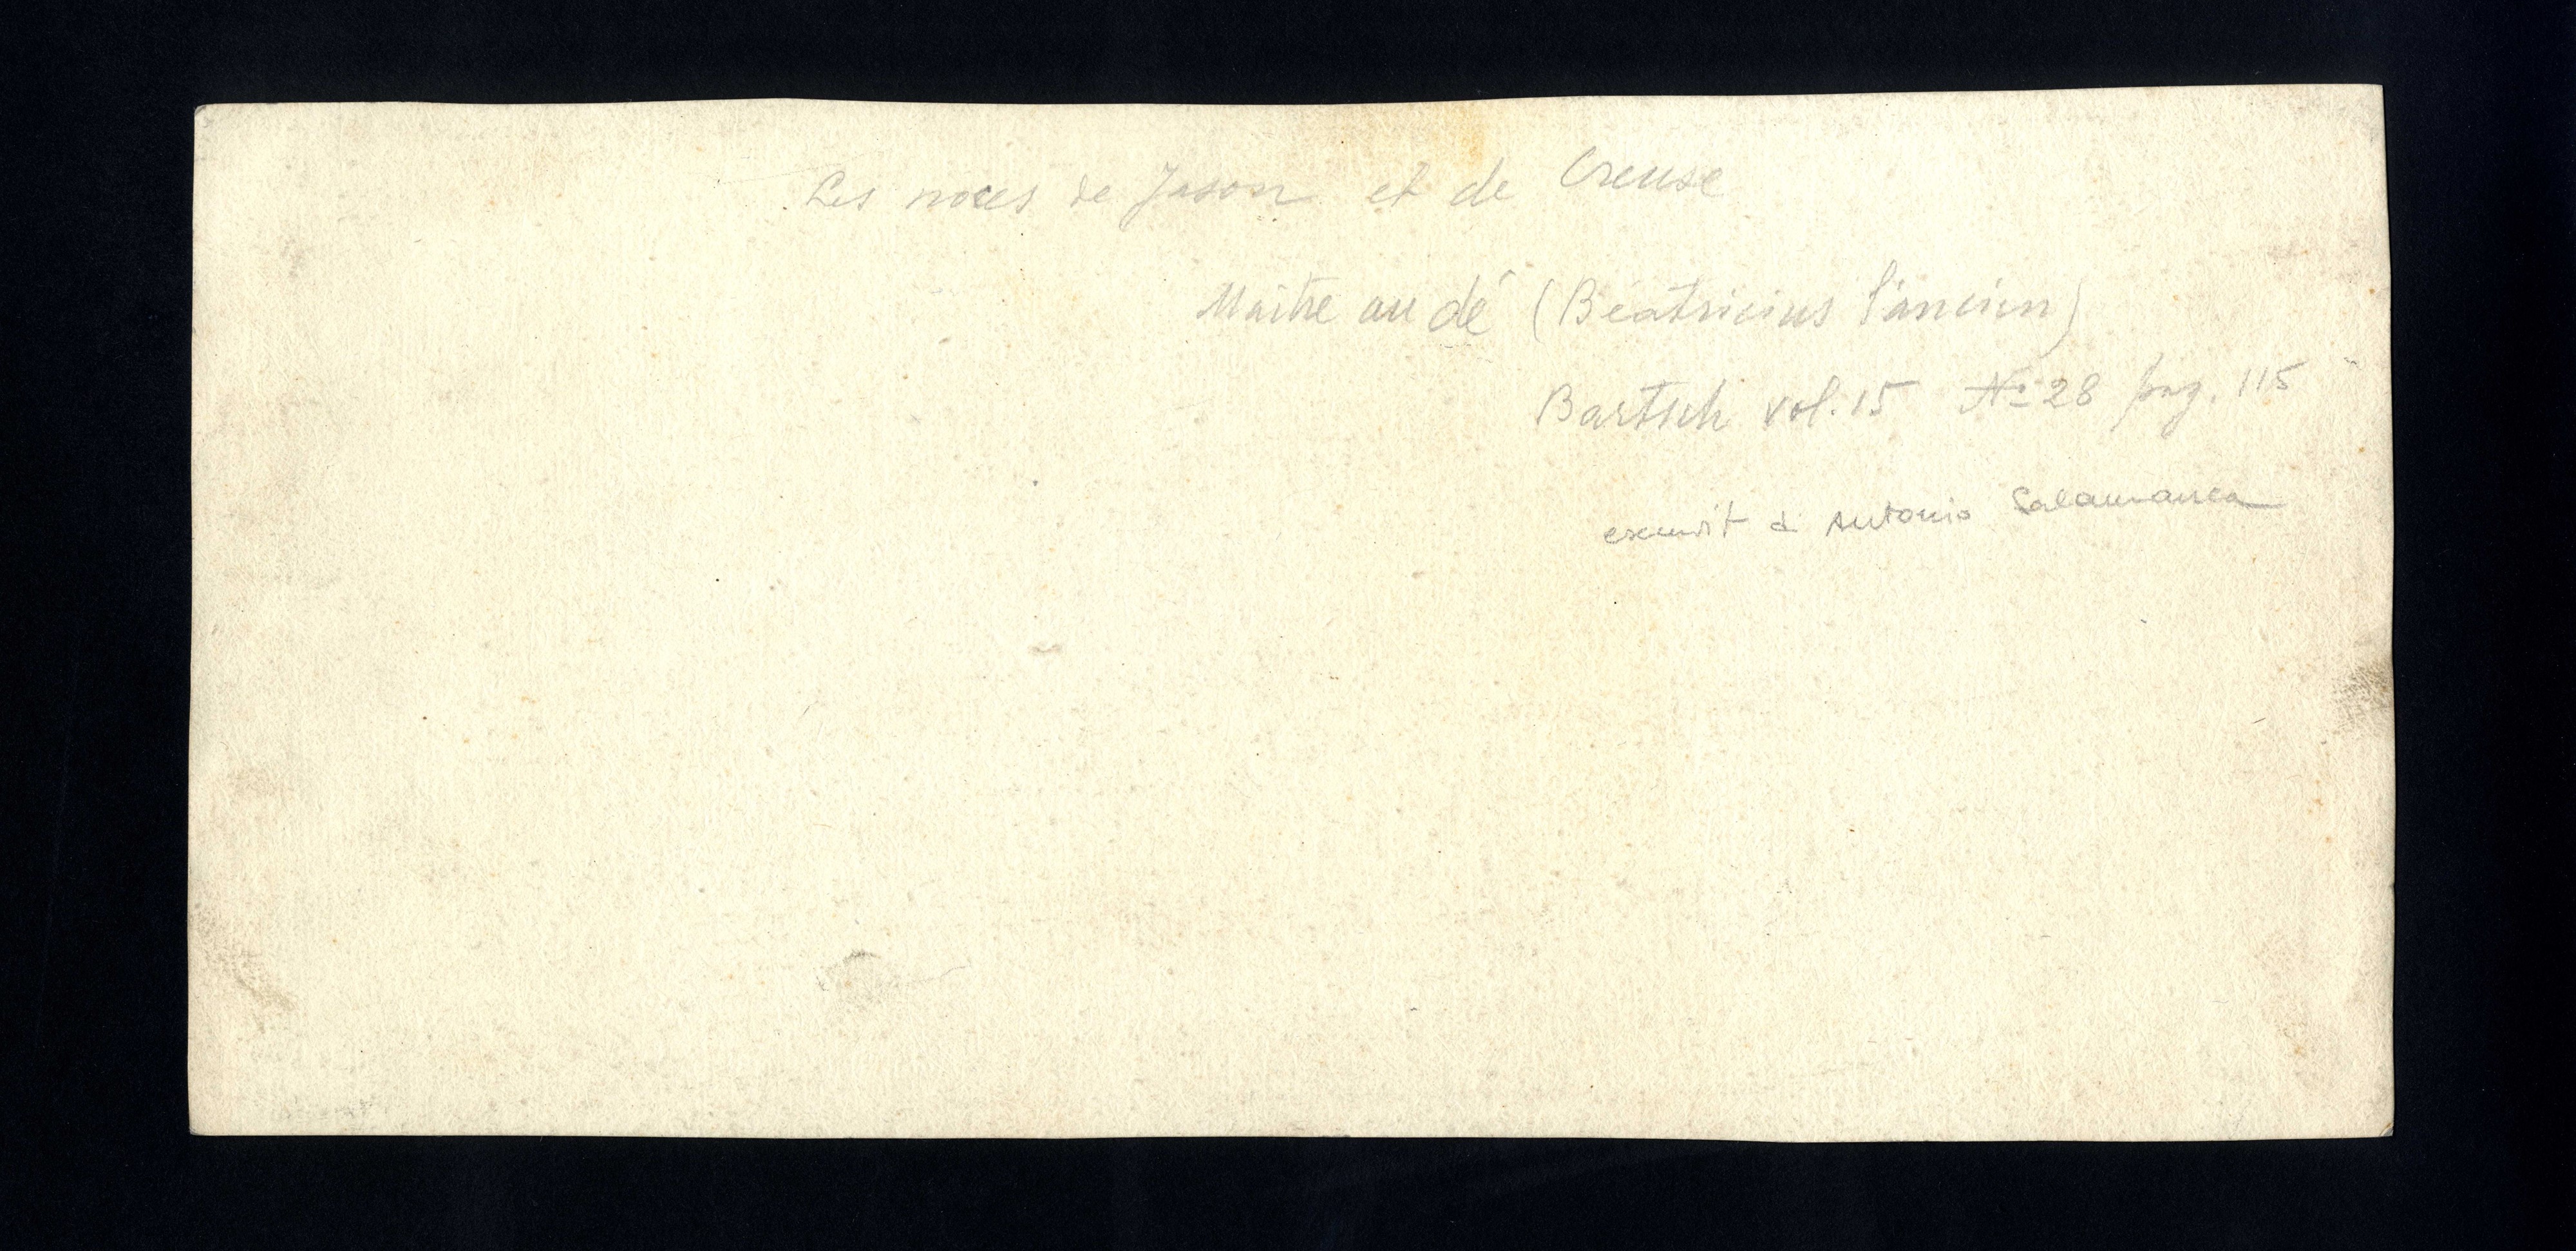 Les noces de Jason et de Creuse
Maitre au dé (Béatricius l'ancien)
Bartsch vol. 15 No 28 pag. 115
excudit à Antonio Salamanca